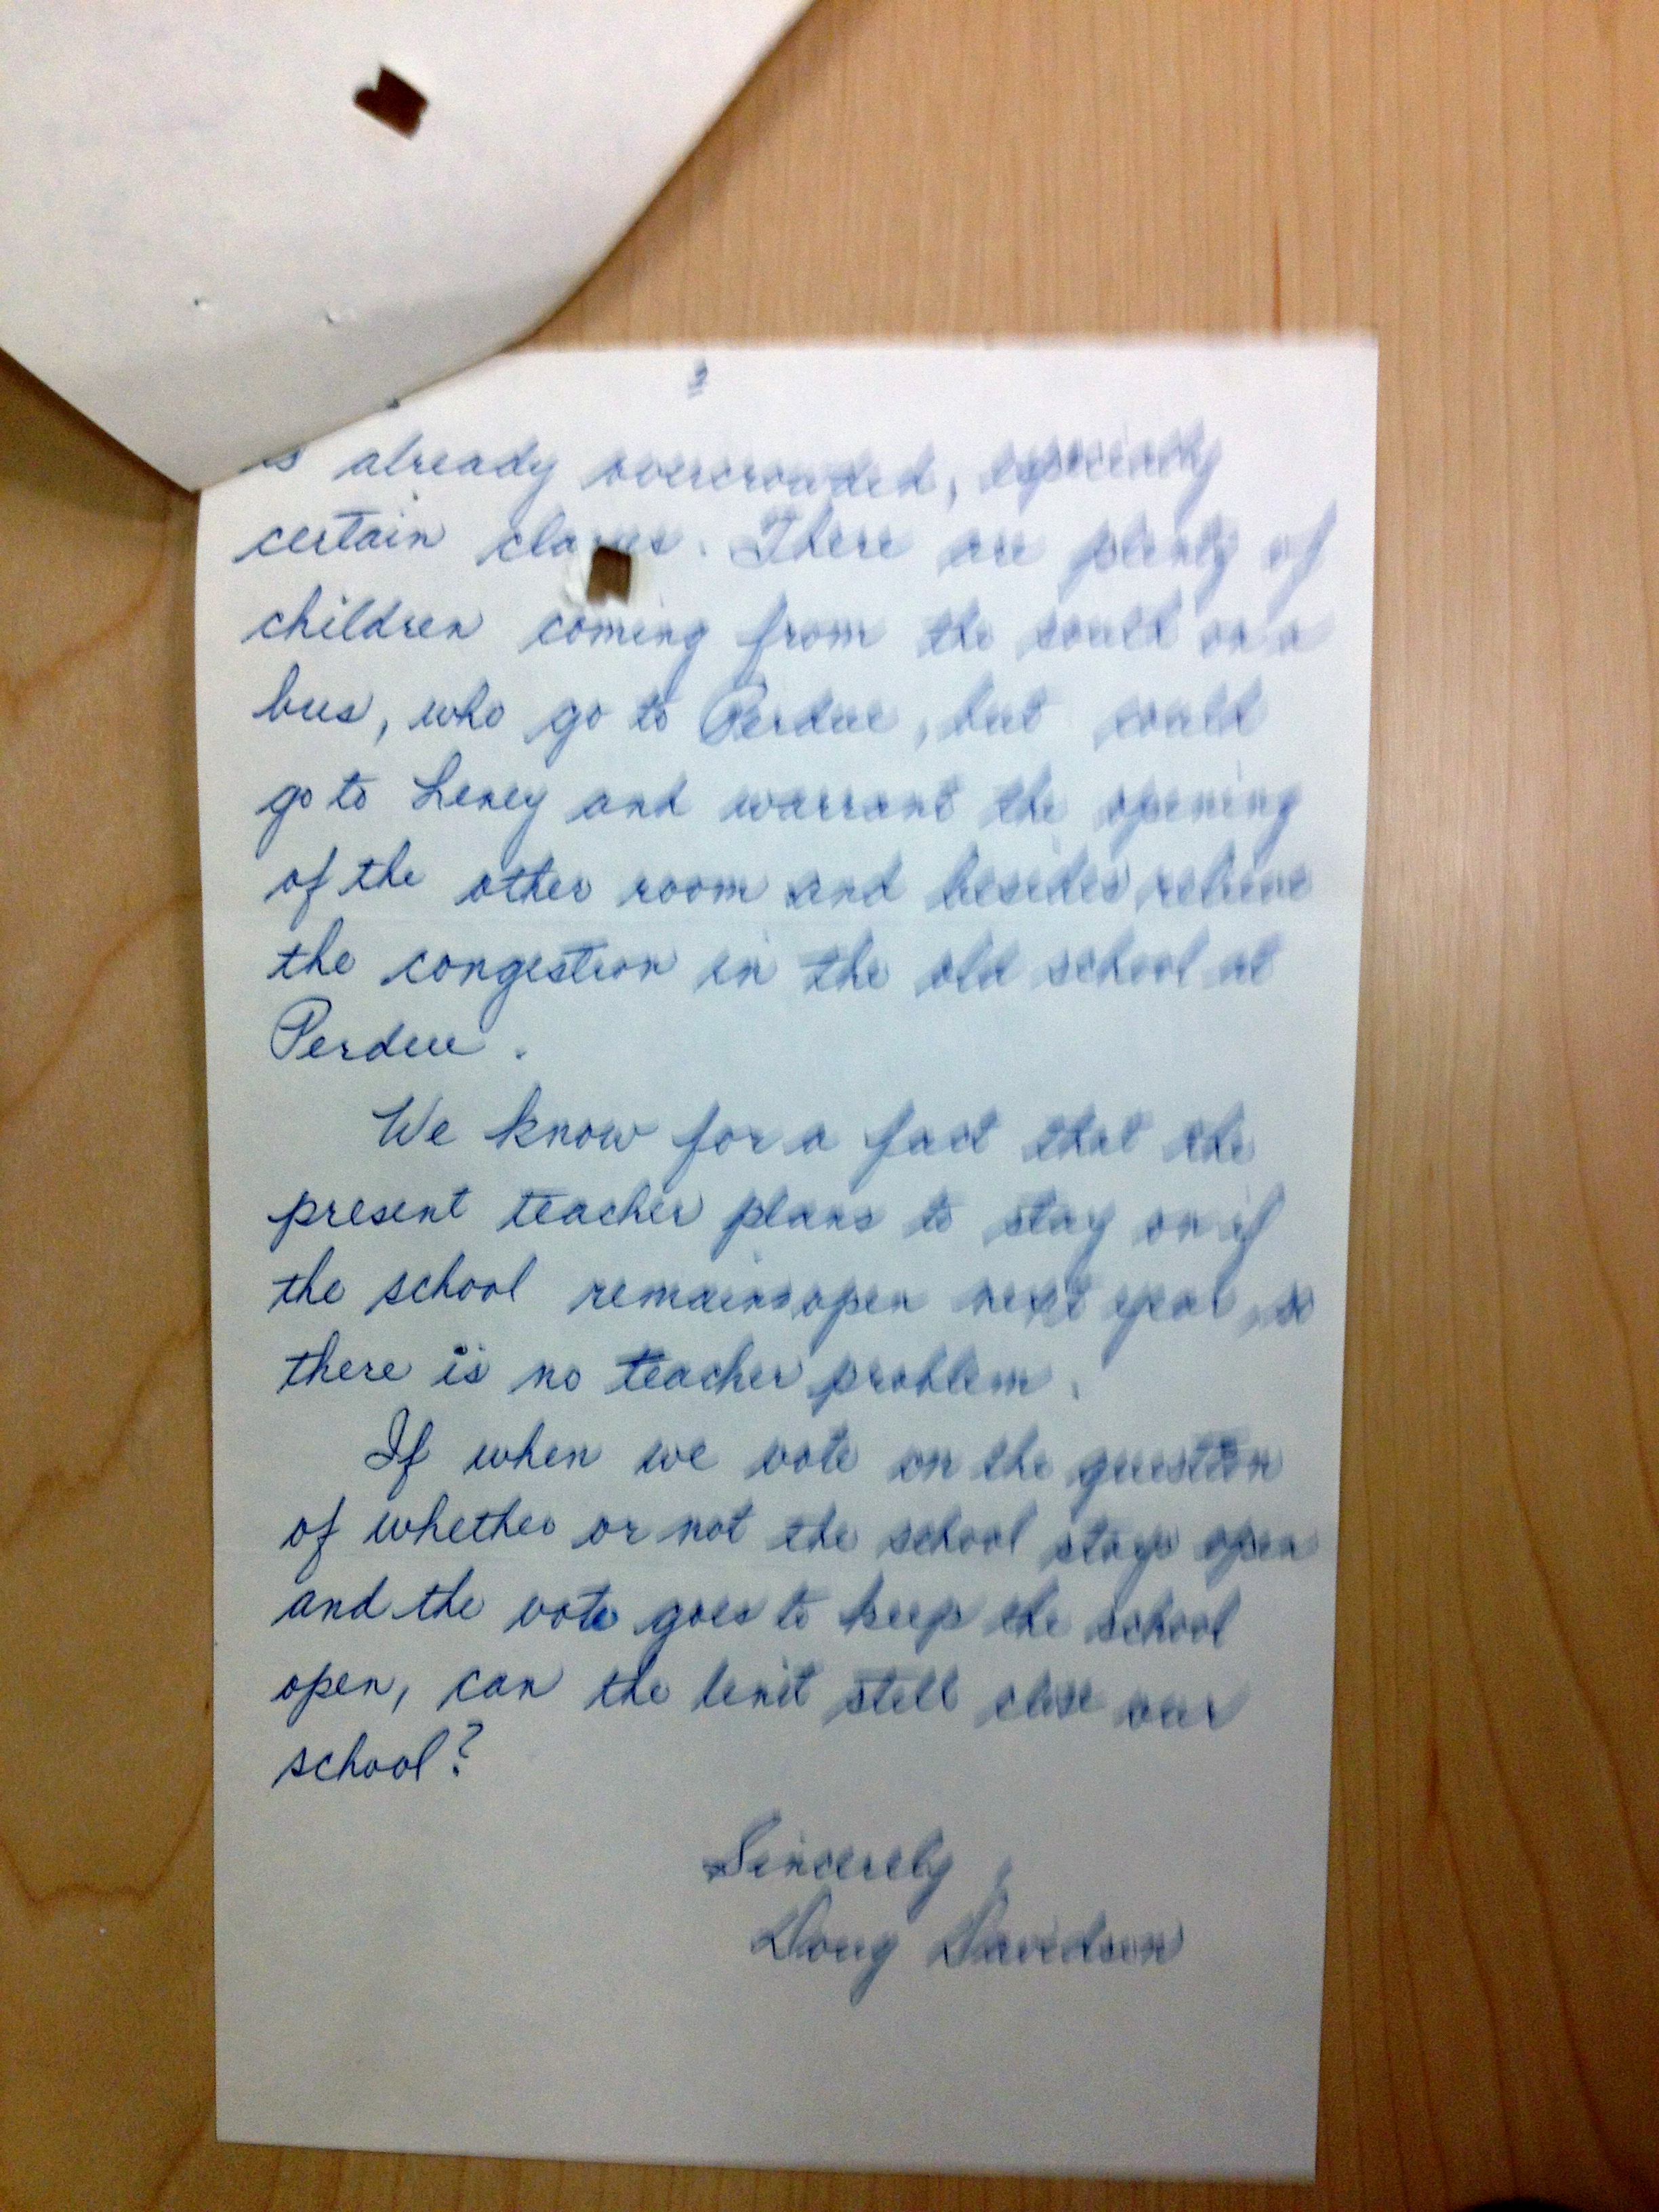 is already overcrowded, especially
certain classes. There are plenty of
children coming from the south on a
bus, who go to Perdue, but could
go to Leney and warrant the opening
of the other room and besides relieve
the congestion in the old school at
Perdue.
We know for a fact that the
present teacher plans to stay on if
the school remains open next year, so
there is no teacher problem.
If when we vote on the question
of whether or not the school stays open
and the vote goes to keep the school
open, can the Unit still close our
school?
Sincerely,
Doug Davidson